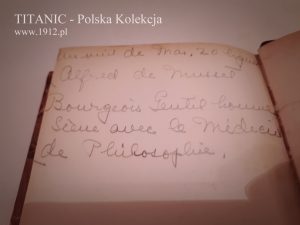 TITANIC - Polska Kolekcja
www.1912.pl
de Mar. 20
Alfred de Musset
Bourgeois Gentil-homme
Scène avec le Médecin
de Philosophie.